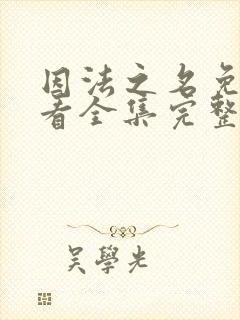 因法之名免
看全集完整
吴學光